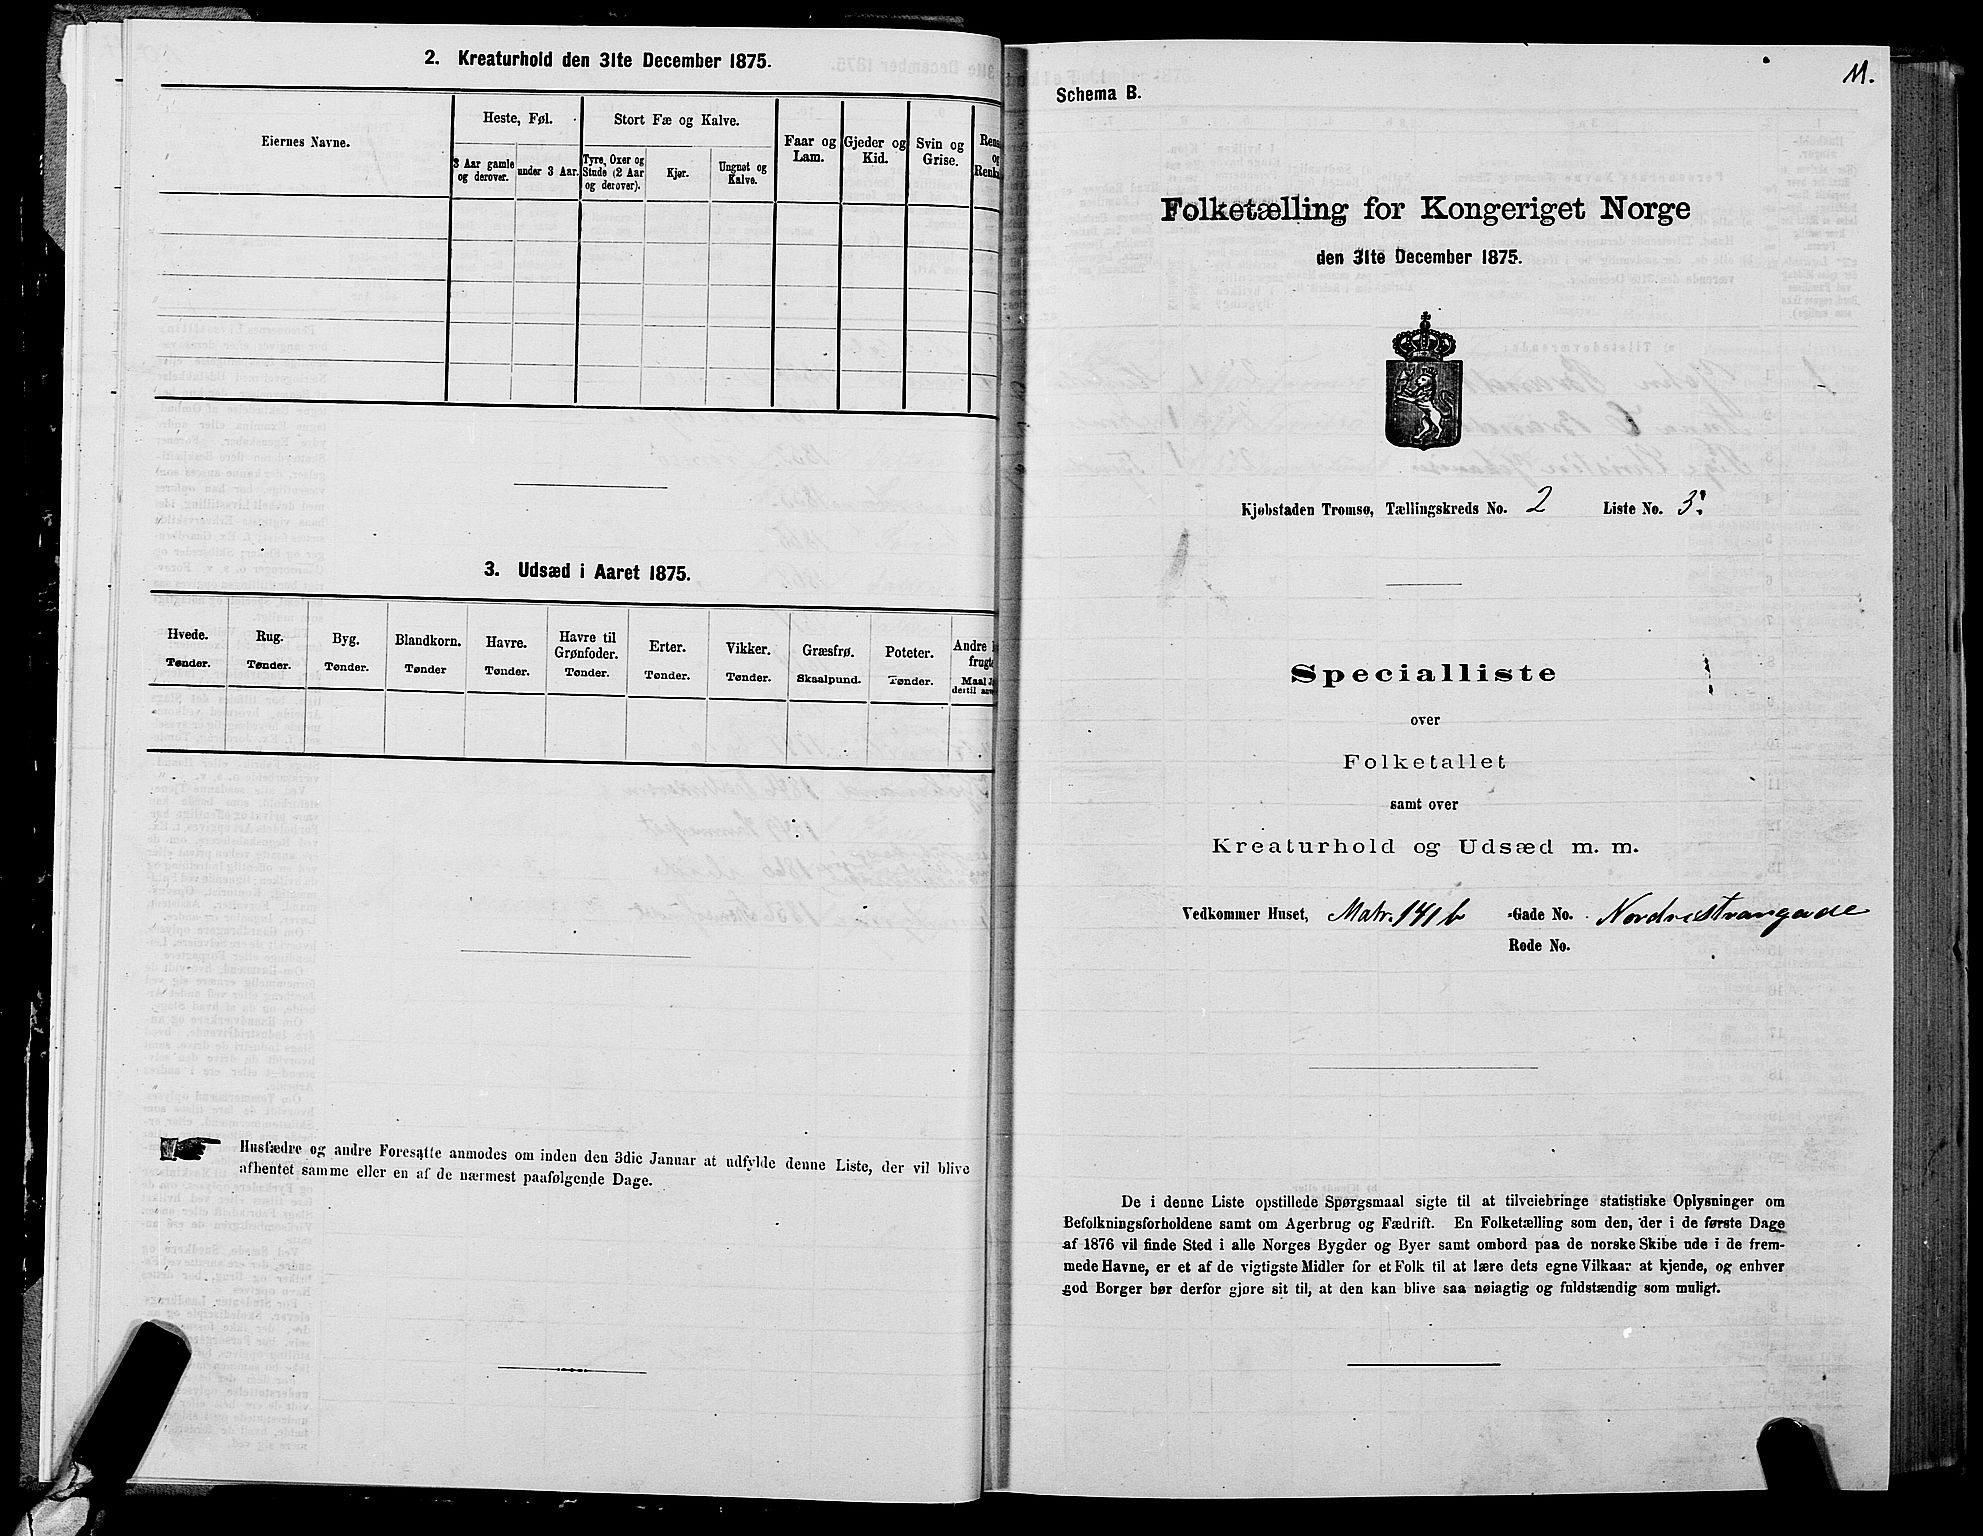 2. Kreaturhold den 31te December 1875.
Eiernes Navne.
Heste, Føl.
3 Aar gamle og derover.
under 3 Aar.
Stort Fæ og Kalve.
Tyre, Oxer og Stude (2 Aar og derover).
Kjør.
Ungnøt og Kalve.
Faar og Lam.
Gjeder og Kid.
Svin og Grise.
Rens
og
Renka
3. Udsæd i Aaret 1875.
Hvede.
Tønder.
Rug.
Tønder.
Byg.
Tønder.
Blandkorn.
Tønder
Havre.
Tønder.
Havre til Grønfoder.
Tønder.
Erter.
Tønder.
Vikker.
Tønder.
Græsfrø.
Skaalpund.
Poteter.
Tønder.
Andre
frugte
Maal
dertil
Husfædre og andre Foresatte anmodes om inden den 3die Januar at udfylde denne Liste, der vil blive
afhentet samme eller en af de nærmest paafølgende Dage.
11.
Schema B.
Folketælling for Kongeriget Norge
den 31te December 1875.
Kjøbstaden Tromsø, Tællingskreds No. 2 Liste No. 3.
Specialliste
over
Folketallet
samt over
Kreaturhold og Udsæd m. m.
Vedkommer Huset, Matr. 141b -Gade No. Nordrestrangade
Rode No.
De i denne Liste opstillede Spørgsmaal sigte til at tilveiebringe statistiske Oplysninger om
Befolkningsforholdene samt om Agerbrug og Fædrift. En Folketælling som den, der i de første Dage
af 1876 vil finde Sted i alle Norges Bygder og Byer samt ombord paa de norske Skibe ude i de frem-
mede Havne, er et af de vigtigste Midler for et Folk til at lære dets egne Vilkaar at kjende, og enhver
god Borger bør derfor gjøre sit til, at den kan blive saa nøiagtig og fuldstændig som muligt.